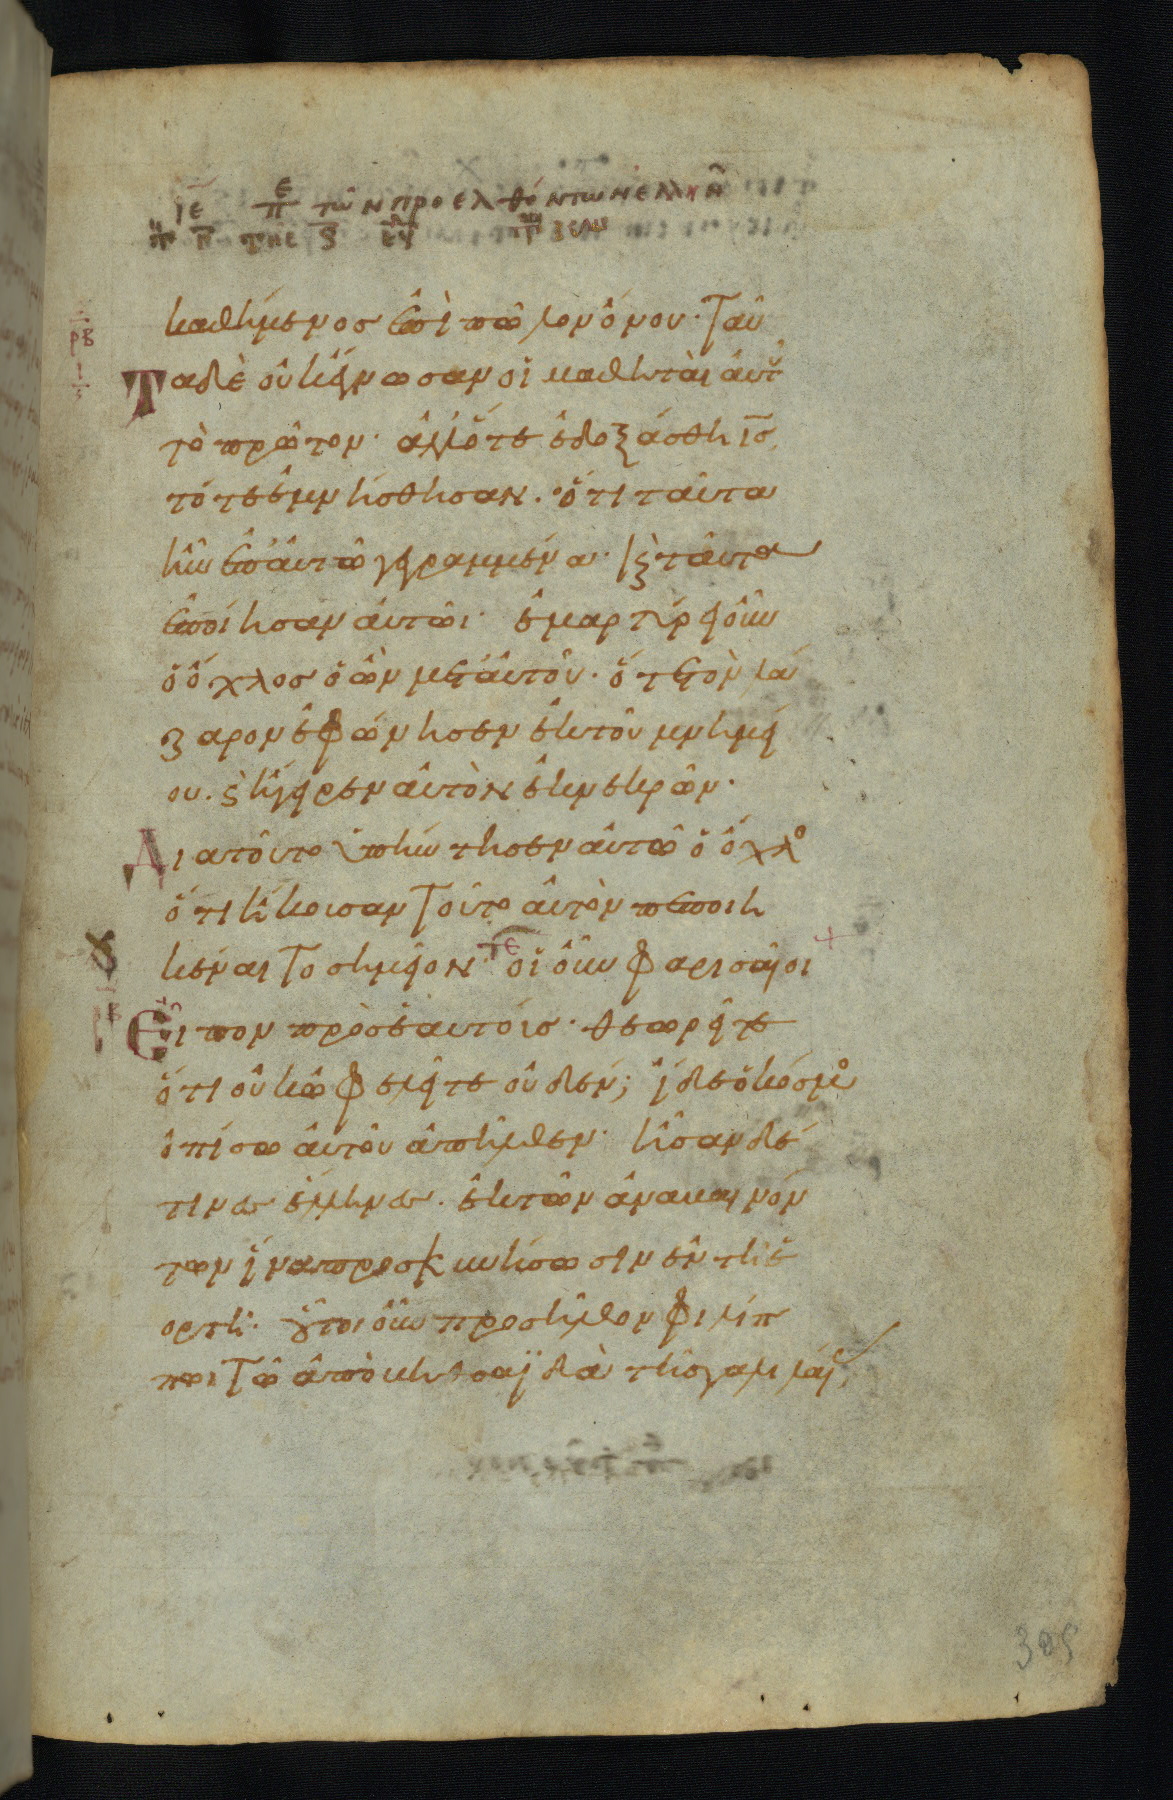 ιε ε π τῶν προελθόντων ἑλλήν
καθήμενος ἐπὶ πῶλον ὄνου· ταῦ
τα δὲ οὐκ ἔγνωσαν οἱ μαθηταὶ αὐτ
τὸ πρῶτον· ἀλλ ὅτε ἐδοξάσθη ις
τότε ἐμνήσθησαν· ὅτι ταῦτα
ἦν ἐπ αὐτῶ γεγραμμένα· κ ταῦτα
ἐποίησαν αὐτῶι· ἐμαρτύρει οὖν
ὁ ὄχλος ὁ ὢν μετ αὐτοῦ· ὅτε τὸν λά
ζαρον ἐφώνησεν ἐκ τοῦ μνημεί
ου· κ ἤγειρεν αὐτὸν ἐκ νεκρῶν·
Διατοῦτο ὑπήντησεν αὐτῶ ὁ ὄχλο
ὅτι ἤκουσαν τοῦτο αὐτὸν πεποιη
κέναι το σημεῖον· τε οἱ οὖν φαρισαῖοι
Εἶπον πρὸς ἑαυτοίς· θεωρεῖτε
ὅτι οὐκ ὠφελεῖτε οὐδέν; ἴδε ὁ κόσμο
ὀπίσω αὐτοῦ ἀπῆλθεν· ἦσαν δέ
τινες ἕλληνες· ἐκ τῶν ἀναβαινόν
των ἵνα προσκυνήσωσιν ἐν τῆ ἑ
ορτῆ· οὗτοι οὖν προσῆλθον φιλίπ
πωι τῶ ἀπὸ βηθσαϊδὰ τῆς γαλιλαί
305